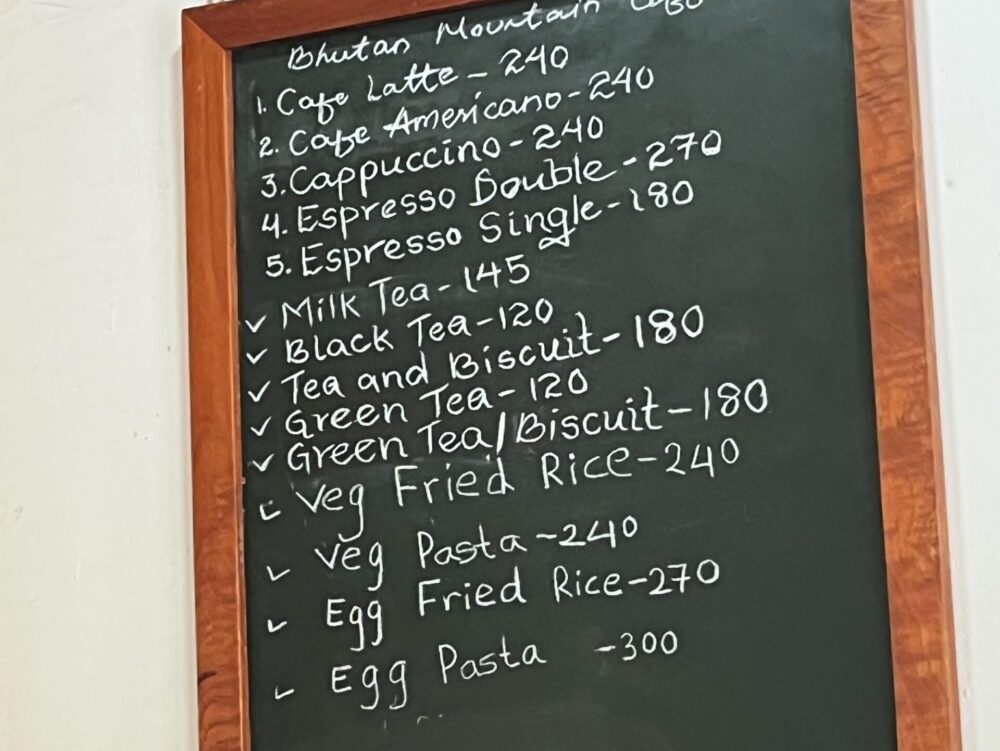 Bhutan Mountain
1. Cafe Latte - 240
2. Cafe Americano - 240
3. Cappuccino - 240
4. Espresso Double - 270
5. Espresso Single - 180
✓ Milk Tea - 145
✓ Black Tea - 120
✓ Tea and Biscuit - 180
✓ Green Tea - 120
✓ Green Tea/Biscuit - 180
✓ Veg Fried Rice - 240
✓ Veg Pasta - 240
✓ Egg Fried Rice - 270
✓ Egg Pasta - 300